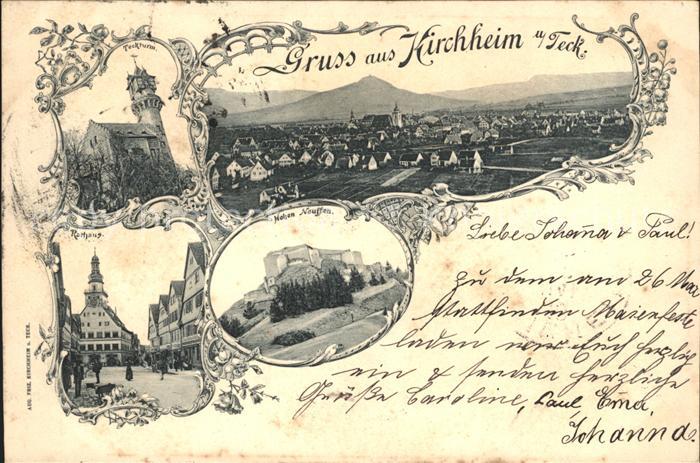 Gruss aus Kirchheim u/Teck.
Teckturm.
Rathaus.
Hohen Neuffen.
Liebe Johanna & Paul!
Zu dem am 26 Mai
stattfinden Maienfest
laden wir Euch herzlich
ein & senden herzliche
Grüße Caroline, Paul, Ema,
Johanna.
AUG. FRIZ, KIRCHHEIM u. TECK.